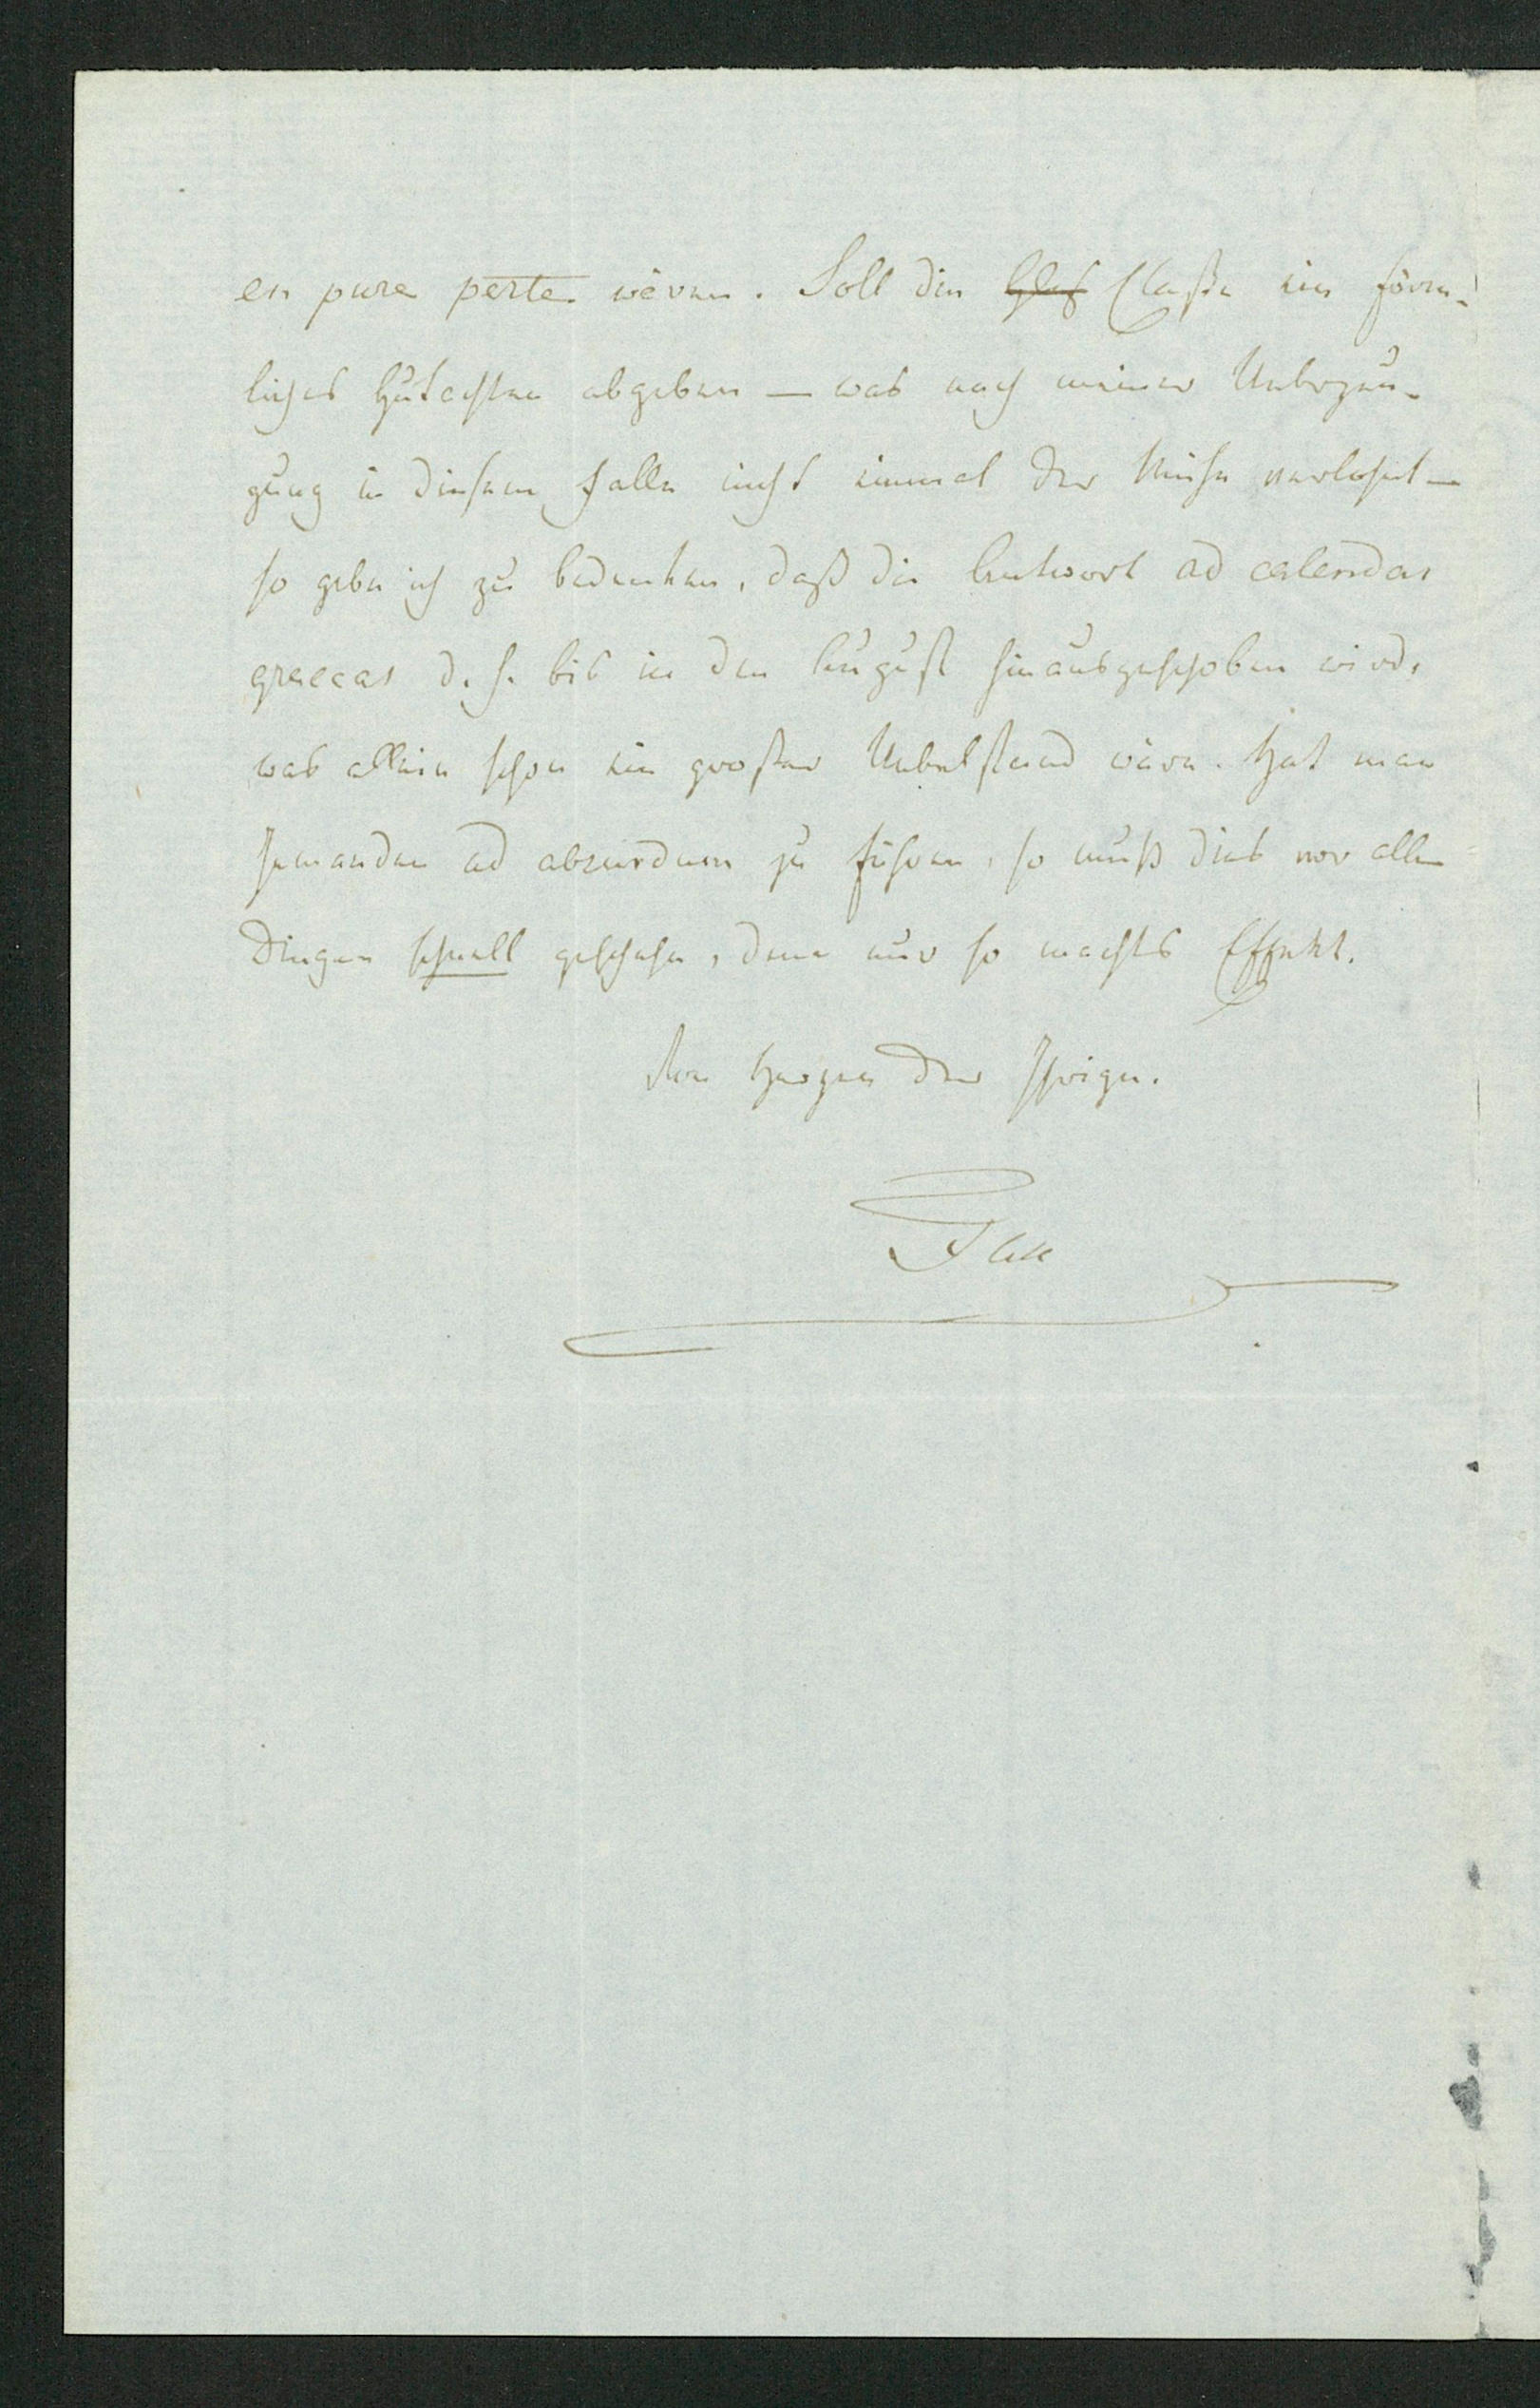 en pure perte wären. Soll die Claße ein förm-
liches Gutachten abgeben — was nach meiner Ueberzeu-
gung in diesem Falle nicht einmal der Mühe verlohnt —
so gebe ich zu bedenken, daß die Antwort ad calendas
graecas d. h. bis in den August hinausgeschoben wird,
was allein schon ein großer Uebelstand wäre. Hat man
Jemanden ad absurdum zu führen, so muß dies vor allen
Dingen schnell geschehen, denn nur so machts Effekt.
Von Herzen der Ihrige.